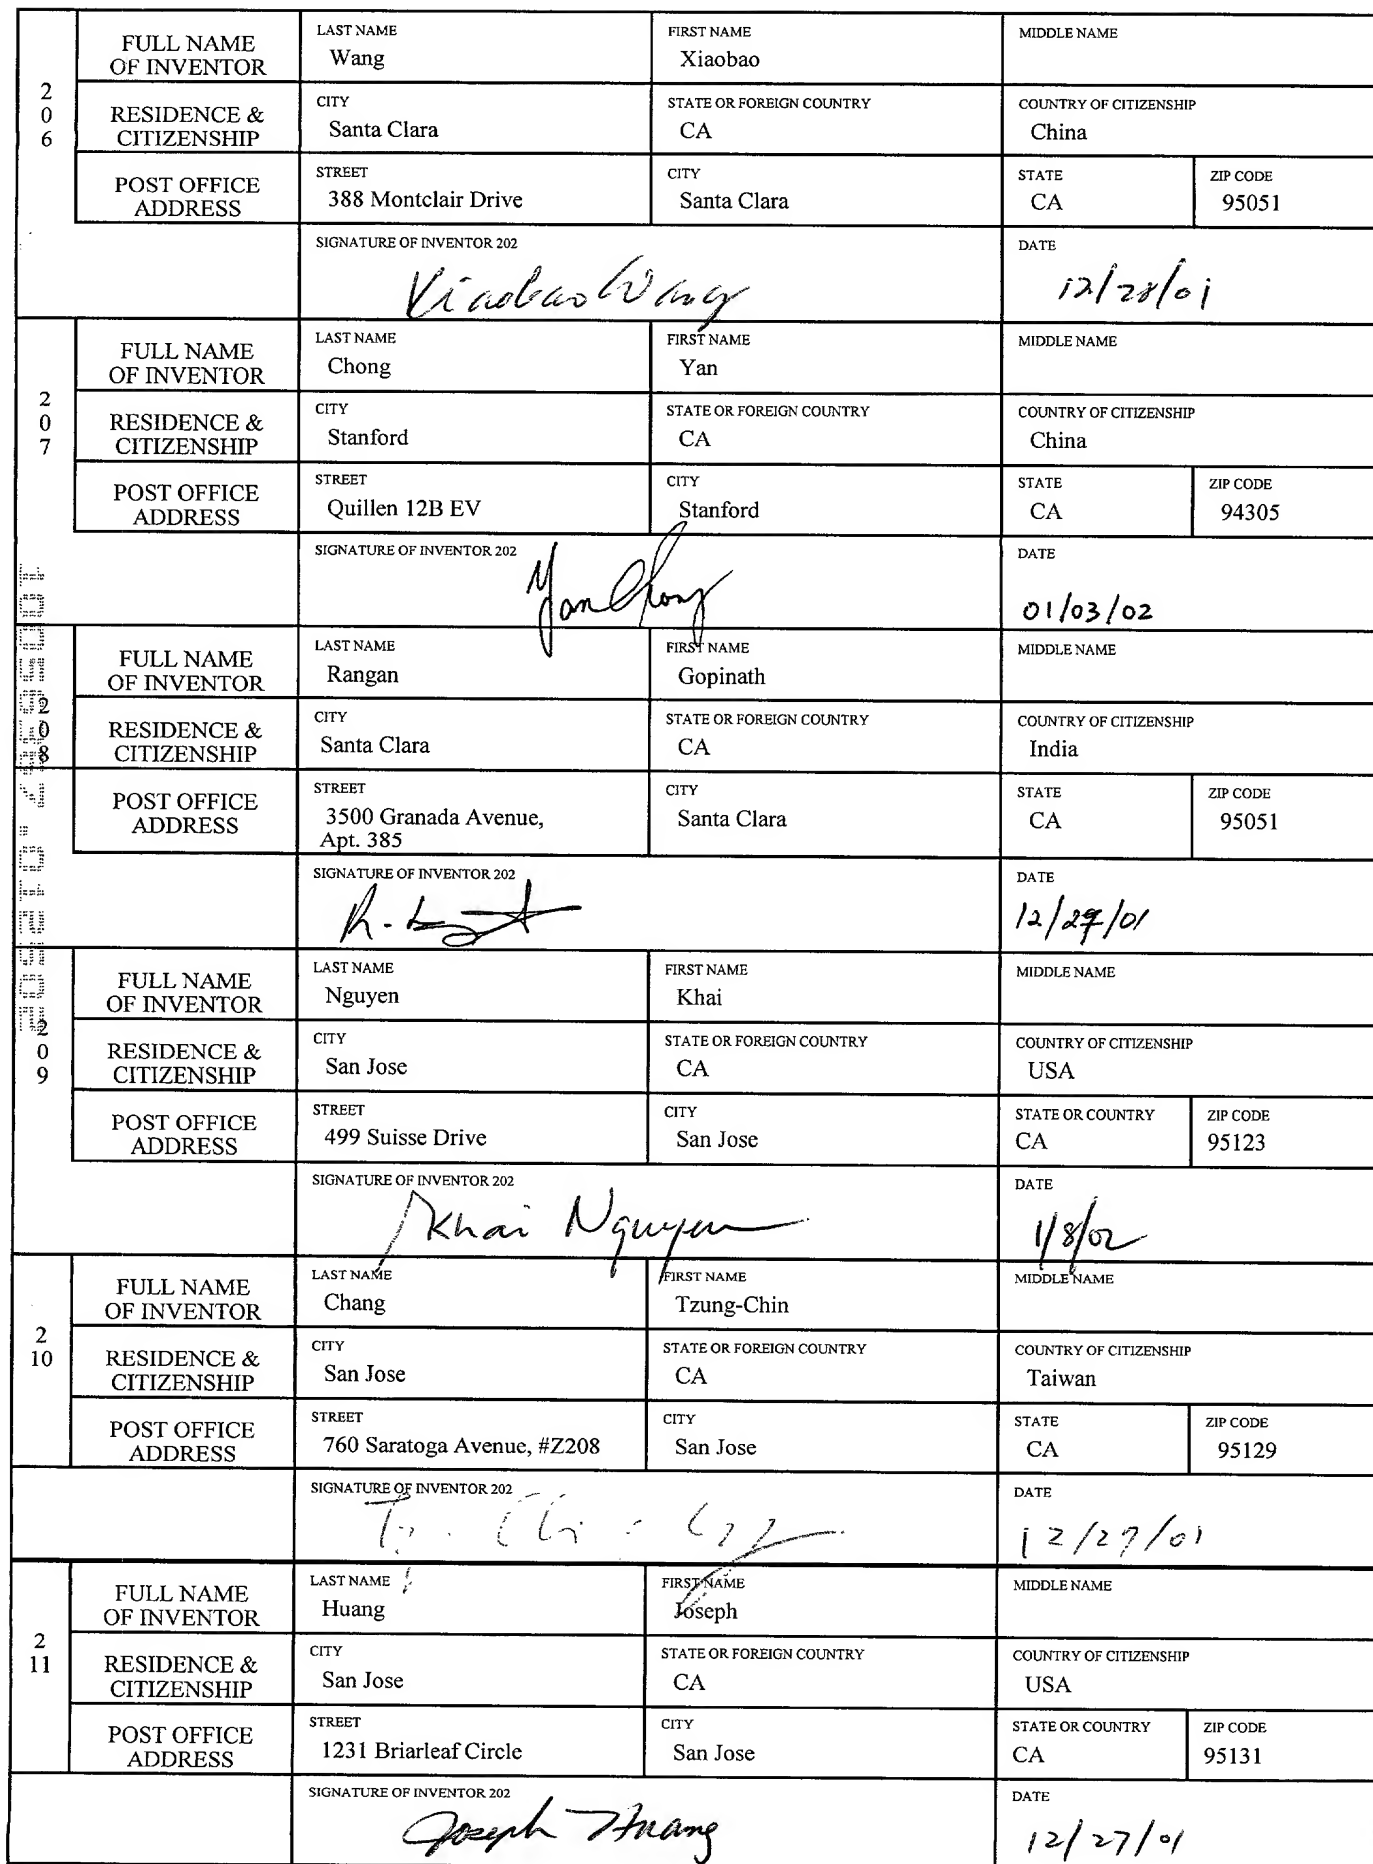 FULL NAME OF INVENTOR
LAST NAME
Wang
FIRST NAME
Xiaobao
MIDDLE NAME
206
RESIDENCE & CITIZENSHIP
CITY
Santa Clara
STATE OR FOREIGN COUNTRY
CA
COUNTRY OF CITIZENSHIP
China
POST OFFICE ADDRESS
STREET
388 Montclair Drive
CITY
Santa Clara
STATE
CA
ZIP CODE
95051
SIGNATURE OF INVENTOR 202
Xiaobao Wang
DATE
12/28/01
FULL NAME OF INVENTOR
LAST NAME
Chong
FIRST NAME
Yan
MIDDLE NAME
207
RESIDENCE & CITIZENSHIP
CITY
Stanford
STATE OR FOREIGN COUNTRY
CA
COUNTRY OF CITIZENSHIP
China
POST OFFICE ADDRESS
STREET
Quillen 12B EV
CITY
Stanford
STATE
CA
ZIP CODE
94305
SIGNATURE OF INVENTOR 202
Yan Chong
DATE
01/03/02
FULL NAME OF INVENTOR
LAST NAME
Rangan
FIRST NAME
Gopinath
MIDDLE NAME
208
RESIDENCE & CITIZENSHIP
CITY
Santa Clara
STATE OR FOREIGN COUNTRY
CA
COUNTRY OF CITIZENSHIP
India
POST OFFICE ADDRESS
STREET
3500 Granada Avenue,
Apt. 385
CITY
Santa Clara
STATE
CA
ZIP CODE
95051
SIGNATURE OF INVENTOR 202
DATE
12/27/01
FULL NAME OF INVENTOR
LAST NAME
Nguyen
FIRST NAME
Khai
MIDDLE NAME
209
RESIDENCE & CITIZENSHIP
CITY
San Jose
STATE OR FOREIGN COUNTRY
CA
COUNTRY OF CITIZENSHIP
USA
POST OFFICE ADDRESS
STREET
499 Suisse Drive
CITY
San Jose
STATE OR COUNTRY
CA
ZIP CODE
95123
SIGNATURE OF INVENTOR 202
Khai Nguyen
DATE
1/8/02
FULL NAME OF INVENTOR
LAST NAME
Chang
FIRST NAME
Tzung-Chin
MIDDLE NAME
210
RESIDENCE & CITIZENSHIP
CITY
San Jose
STATE OR FOREIGN COUNTRY
CA
COUNTRY OF CITIZENSHIP
Taiwan
POST OFFICE ADDRESS
STREET
760 Saratoga Avenue, #Z208
CITY
San Jose
STATE
CA
ZIP CODE
95129
SIGNATURE OF INVENTOR 202
DATE
12/27/01
FULL NAME OF INVENTOR
LAST NAME
Huang
FIRST NAME
Joseph
MIDDLE NAME
211
RESIDENCE & CITIZENSHIP
CITY
San Jose
STATE OR FOREIGN COUNTRY
CA
COUNTRY OF CITIZENSHIP
USA
POST OFFICE ADDRESS
STREET
1231 Briarleaf Circle
CITY
San Jose
STATE OR COUNTRY
CA
ZIP CODE
95131
SIGNATURE OF INVENTOR 202
Joseph Huang
DATE
12/27/01